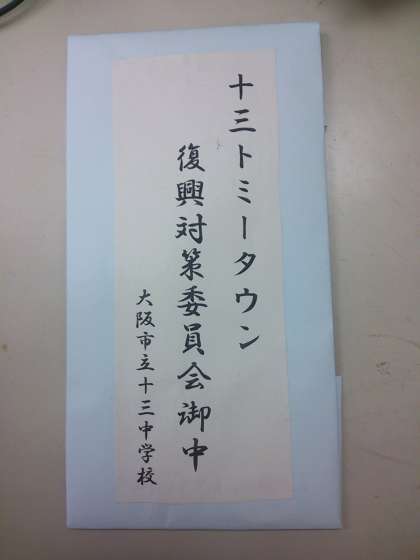 十三トミータウン
復興対策委員会御中
大阪市立十三中学校